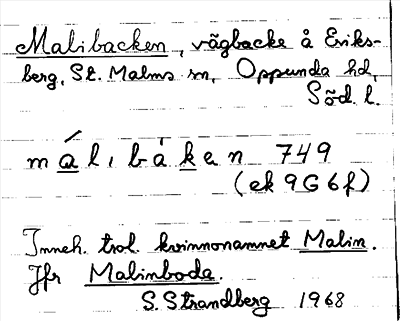 Malibacken, vägbacke å Eriks-
berg, St. Malms sn, Oppunda hd,
Söd. l.
má̱l, bàḵen 749
(ek 9G6f)
Inneh. trol. kvinnonamnet Malin.
Jfr Malinboda.
S. Strandberg 1968